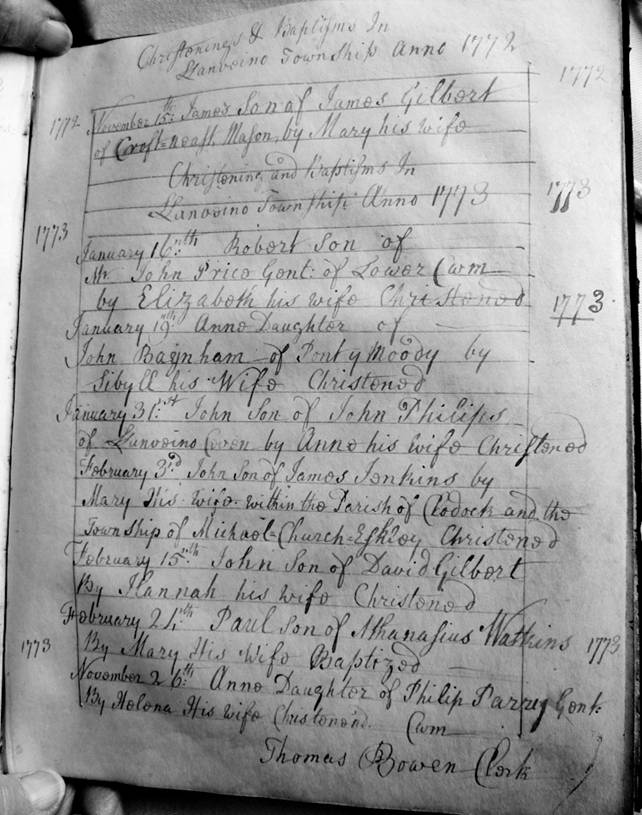 Christonings & Baptisms In
Llanvoino Township Anno 1772
1772
1772 November 15th James Son of James Gilbert
of Croft=neast, Mason, by Mary his wife
Christoning and Baptisms In
Llanovino Township Anno 1773
1773
1773
January 16:nth Robert Son of
Mr John Price Gent: of Lower Cwm
by Elizabeth his wife Christened
1773
January 19nth Anne Daughter of
John Baynham of Pont y Moody by
Sibyll his Wife Christened
January 31:st John Son of John Philips
of Llanvoino Coven by Anne his wife Christened
February 3rd John Son of James Jenkins by
Mary His wife within the Parish of Clodock and the
Township of Michael=Church=Eskley Christened
February 15:nth John Son of David Gilbert
By Hannah his wife Christened
February 21:nth Paul Son of Athanasius Watkins 1773
1773 By Mary His Wife Baptized
November 26:nth Anne Daughter of Philip Parry Gent:
By Helena His wife Christened. Cwm
Thomas Bowen Clerk